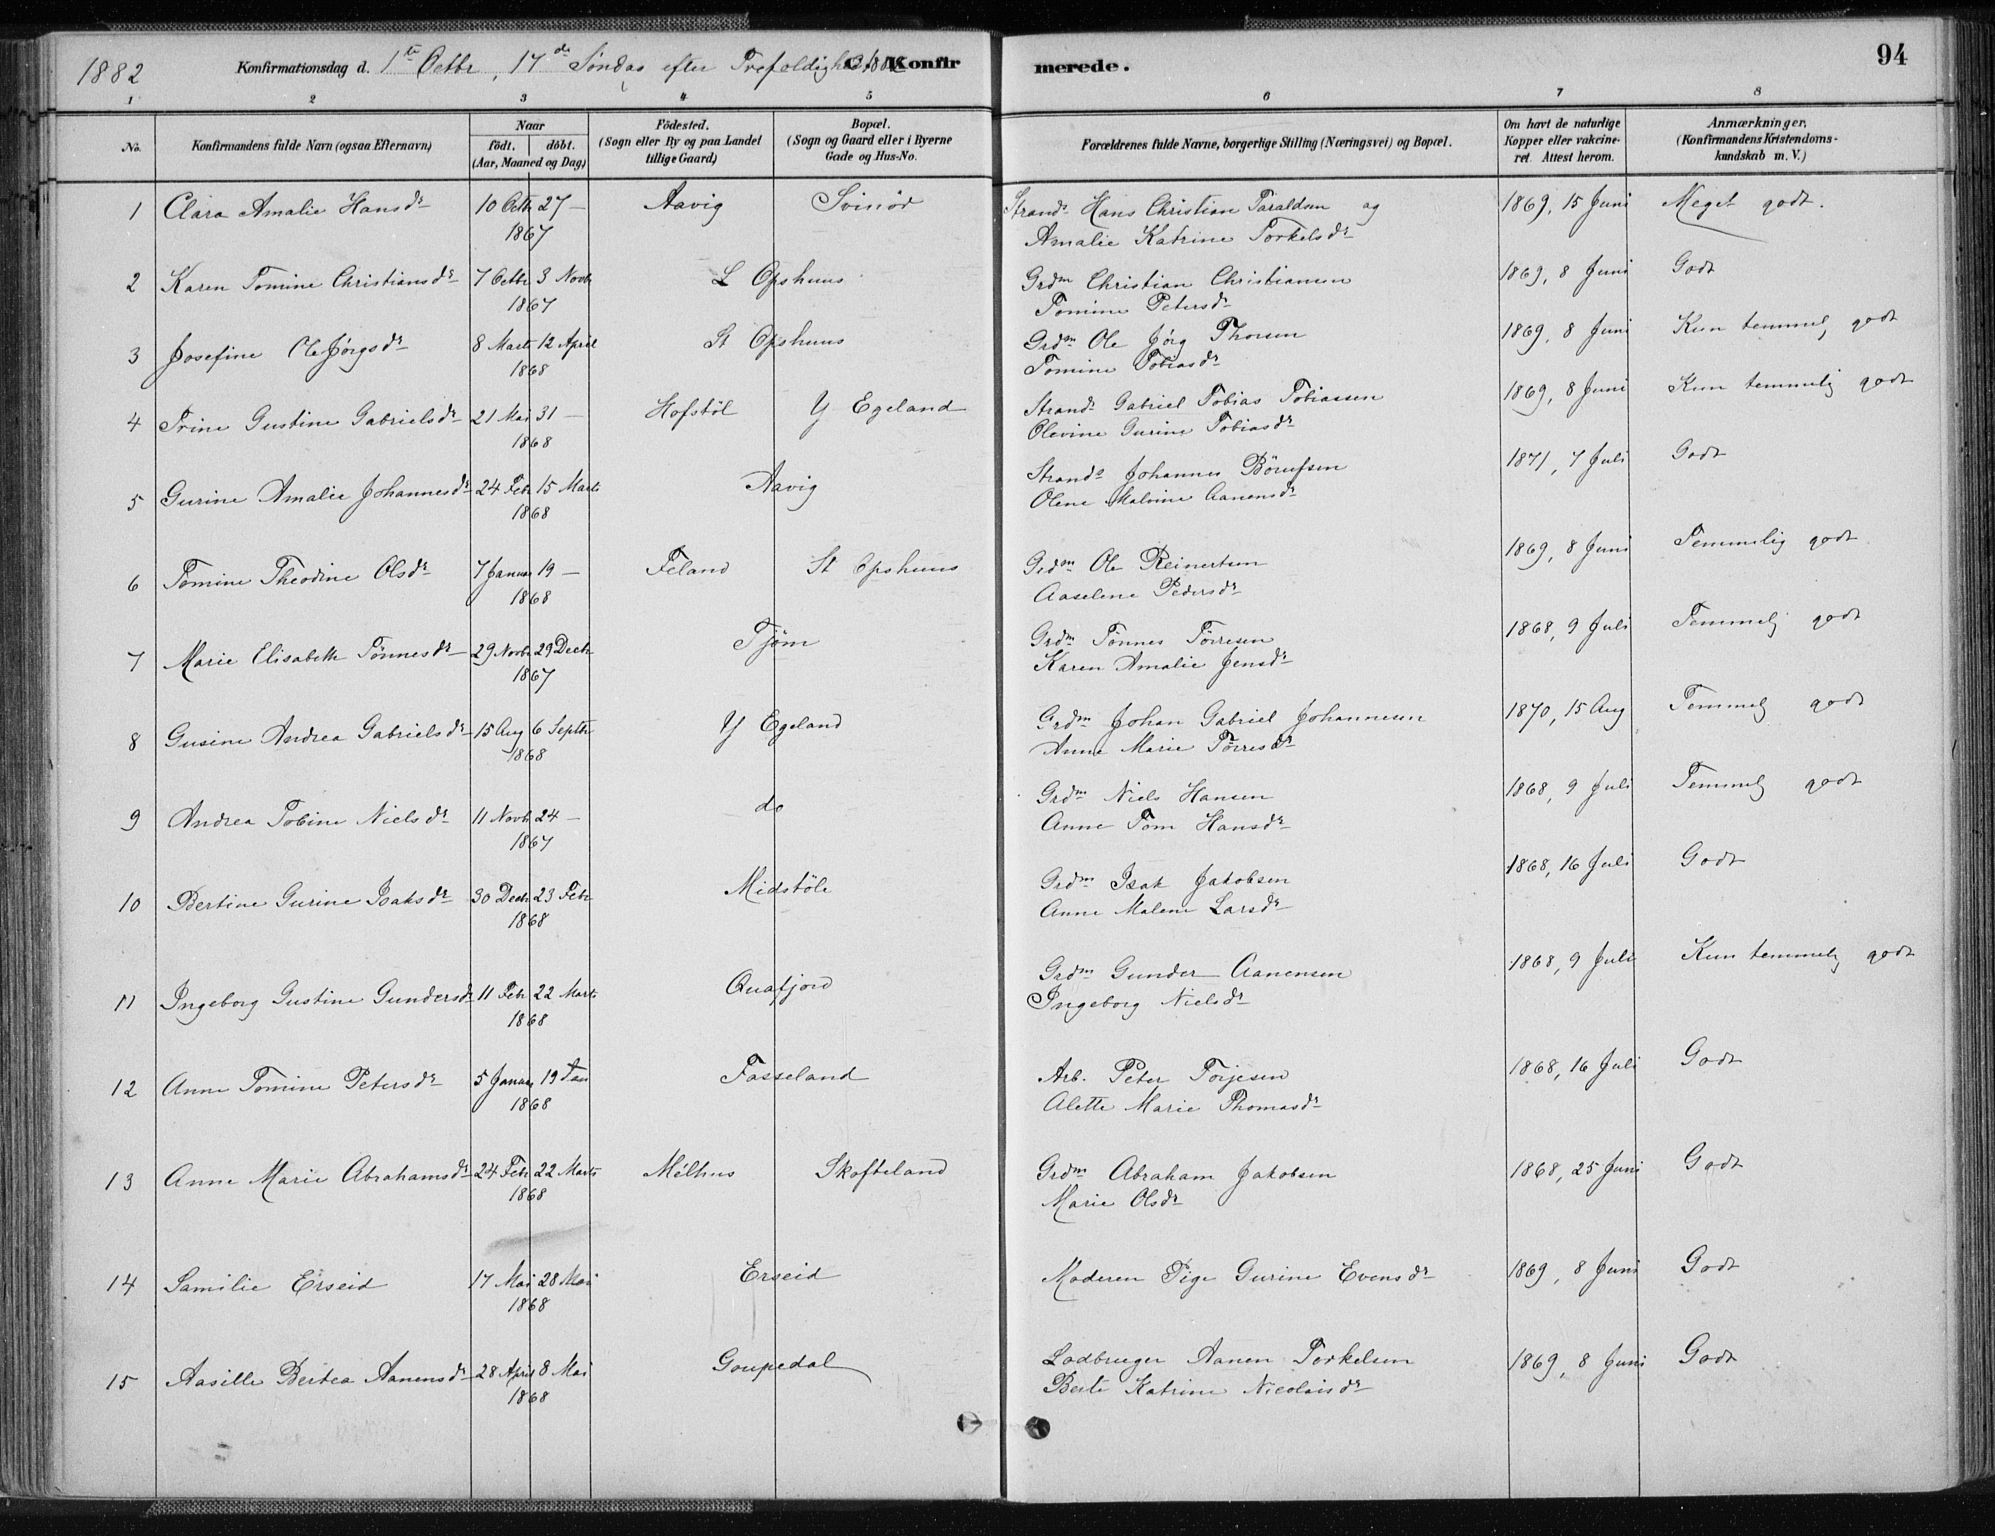 1882 Konfirmationsdag d. 1ste Octbr, 17de Søndag efter Trefoldighed 1882 C. Konfirmerede. 94
1 2 3 4 5 6 7 8
No. Konfirmandens fulde Navn (ogsaa Efternavn) Naar født. døbt. (Aar, Maaned og Dag) Fødested. (Sogn eller By og paa Landet tillige Gaard) Bopæl. (Sogn og Gaard eller i Byerne Gade og Hus-No. Forældrenes fulde Navne, borgerlige Stilling (Næringsvei) og Bopæl. Om havt de naturlige Kopper eller vakcineret. Attest herom. Anmærkninger. (Konfirmandens Kristendomskundskab m. V.)
1 Clara Amalie Hansdr 10 Octbr 27 — Aavig Svinör Strands Hans Christian Taraldsen og 1869, 15 Juni Meget godt.
1867 Amalie Katrine Torkelsdr
2 Karen Tomine Christiansdr 7 Octbr 3 Novbr L Opshuus Grdm Christian Christiansen 1869, 8 Juni Godt
1867 Tomine Petersdr
3 Josefine OleJørgsdr 8 Marts 12 April St Opshuus Grdm Ole Jørg Thorsen 1869, 8 Juni Kun temmel. godt
1868 Tomine Tobiasdr
4 Trine Gustine Gabrielsdr 21 Mai 31 — Hofstöl Y Egeland Strands Gabriel Tobias Tobiassen 1869, 8 Juni Kun temmelig godt
1868 Olevine Gurine Tobiasdr
5 Gurine Amalie Johannesdr 24 Febr 15 Marts Aavig Strands Johannes Börufsen 1871, 7 Juli Godt
1868 Olene Malvine Aanensdr
6 Tomine Theodine Olsdr 7 Januar 19 — Feland St Opshuus Grdm Ole Reinertsen 1869, 8 Juni Temmelig godt
1868 Aaselene Pedersdr
7 Marie Elisabeth Tønnesdr 29 Novbr 29 Decbr Tjøm Grdm Tønnes Tørresen 1868, 9 Juli Temmelg godt
1867 Karen Amalie Jensdr
8 Gusine Andrea Gabrielsdr 15 Aug 6 Septbr Y Egeland Grdm Johan Gabriel Johannesen 1870, 15 Aug Temmelg godt
1868 Anne Marie Tørresdr
9 Andrea Tobine Nielsdr 11 Novbr 24 — do Grdm Niels Hansen 1868, 9 Juli Temmelg godt
1867 Anne Tom Hansdr
10 Bertine Gurine Isaksdr 30 Decbr 23 Febr Midstöle Grdm Isak Jakobsen 1868, 16 Juli Godt
1868 Anne Malene Larsdr
11 Ingeborg Gustine Gundersdr 11 Febr 22 Marts Quafjord Grdm Gunder Aanensen 1868, 9 Juli Kun temmelg godt
1868 Ingeborg Nielsdr
12 Anne Tomine Petersdr 5 Januar 19 Jan Fasseland Arb. Peter Torjesen 1868, 16 Juli Godt
1868 Alette Marie Thomasdr
13 Anne Marie Abrahamsdr 24 Febr 22 Marts Mélhus Skofteland Grdm Abraham Jakobsen 1868, 25 Juni Godt
1868 Marie Olsdr
14 Samilie Erseid 17 Mai 28 Mai Erseid Moderen Pige Gurine Evensdr 1869, 8 Juni Godt
1868
15 Aasille Bertea Aanensdr 28 April 8 Mai Goupedal Lodbruger Aanen Torkelsen 1869, 8 Juni Godt
1868 Berte Katrine Nicolaisdr